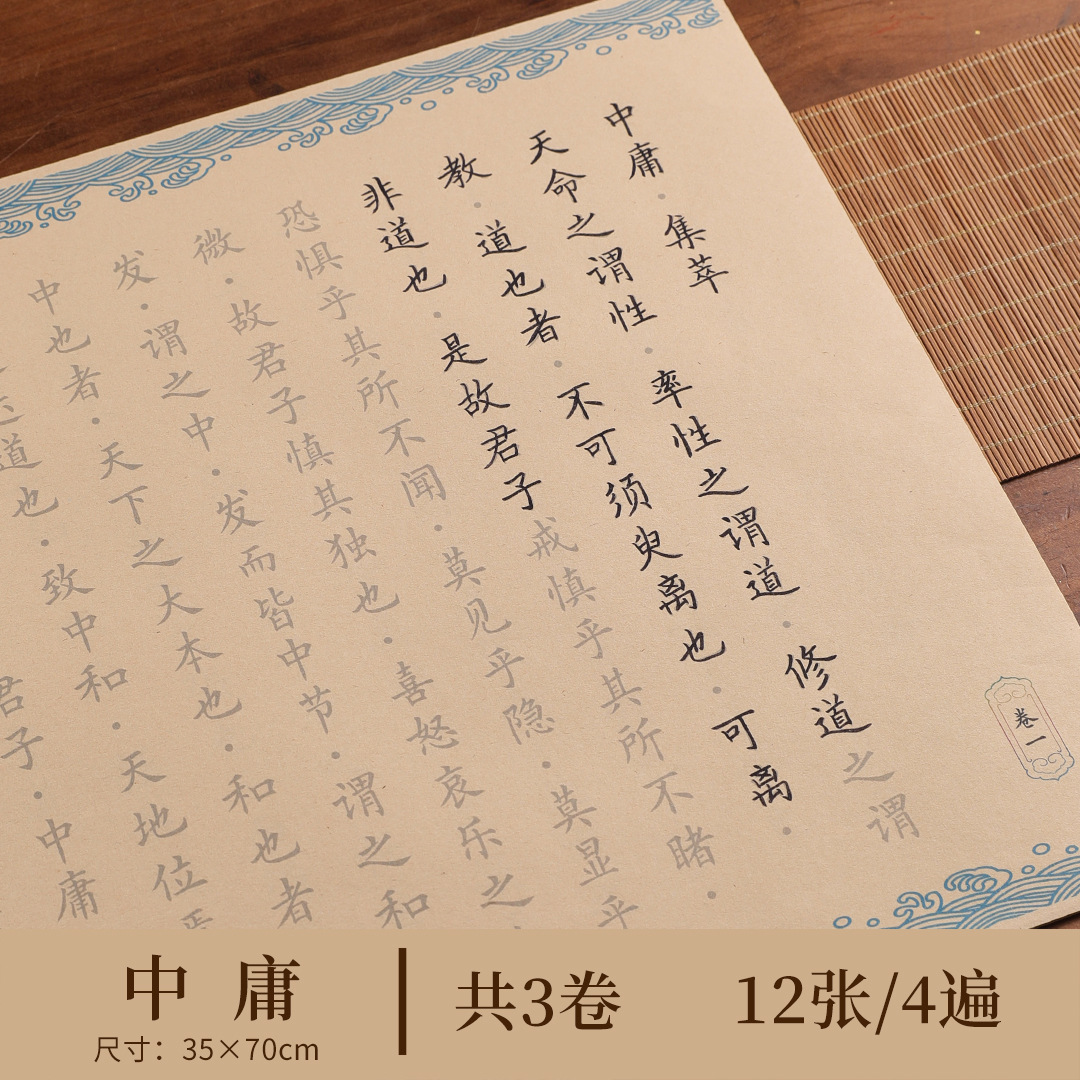 中庸·集萃
天命之谓性·率性之谓道·修道之谓
教·道也者·不可须臾离也·可离·
非道也·是故君子戒慎乎其所不睹·
恐惧乎其所不闻·莫见乎隐·莫显乎
微·故君子慎其独也·喜怒哀乐之
发·谓之中·发而皆中节·谓之和
中也者·天下之大本也·和也者
道也·致中和·天地位焉
君子·中庸
卷一
中庸
尺寸：35×70cm
共3卷
12张/4遍